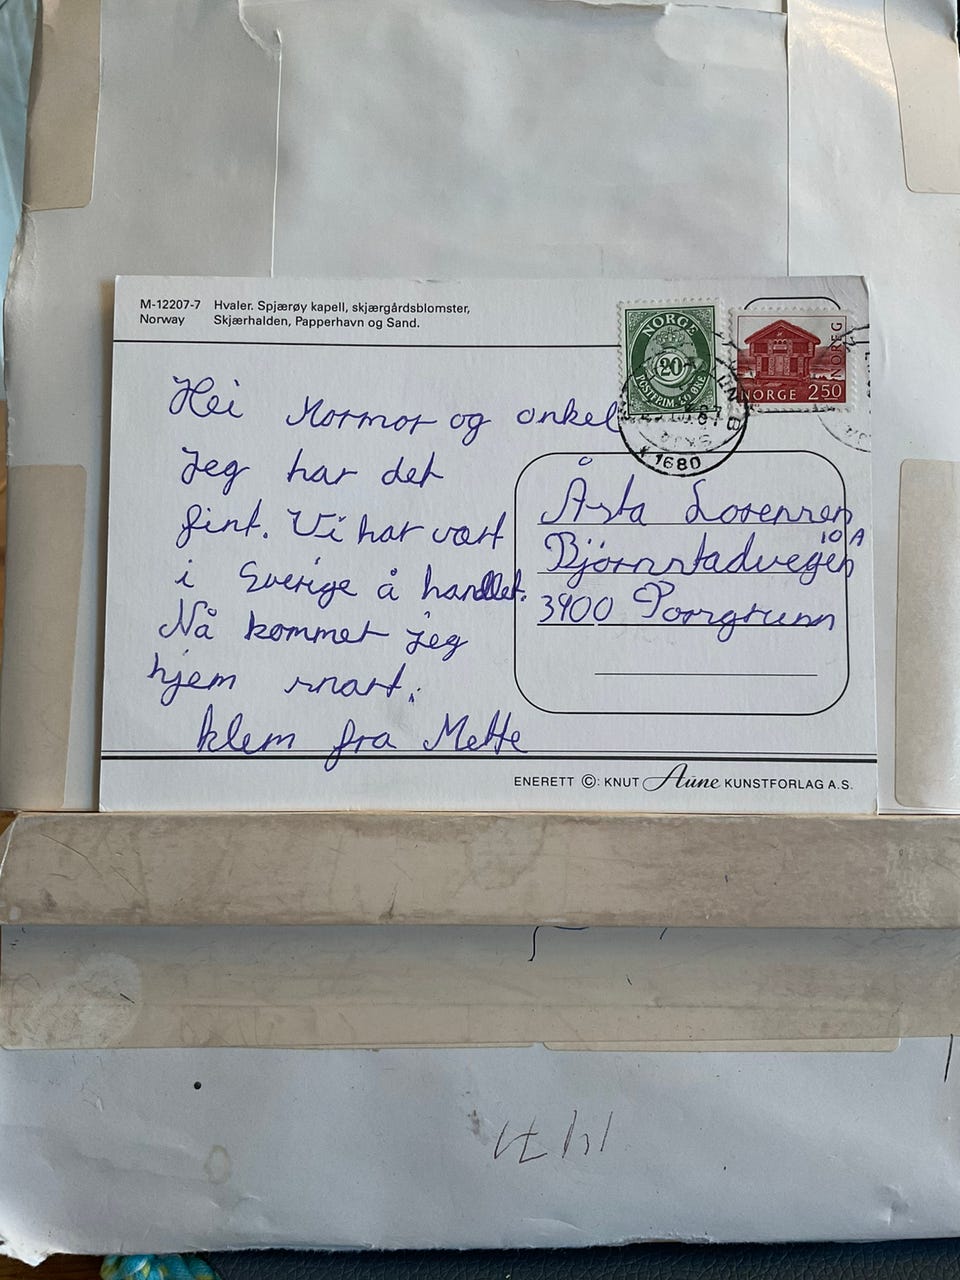 M-12207-7 Hvaler. Spjærøy kapell, skjærgårdsblomster,
Norway Skjærhalden, Papperhavn og Sand.
NORGE
20
POSTFRIM. 50 ØRE
NOREG
NORGE 250
1680
Hei Mormor og onkel
Jeg har det
fint. Vi har vært
i Sverige å handlet.
Nå kommer jeg
hjem snart.
klem fra Mette
Åsta Lorensen
Bjørnstadvegen 10 A
3900 Porsgrunn
ENERETT ©: KNUT Aune KUNSTFORLAG A.S.